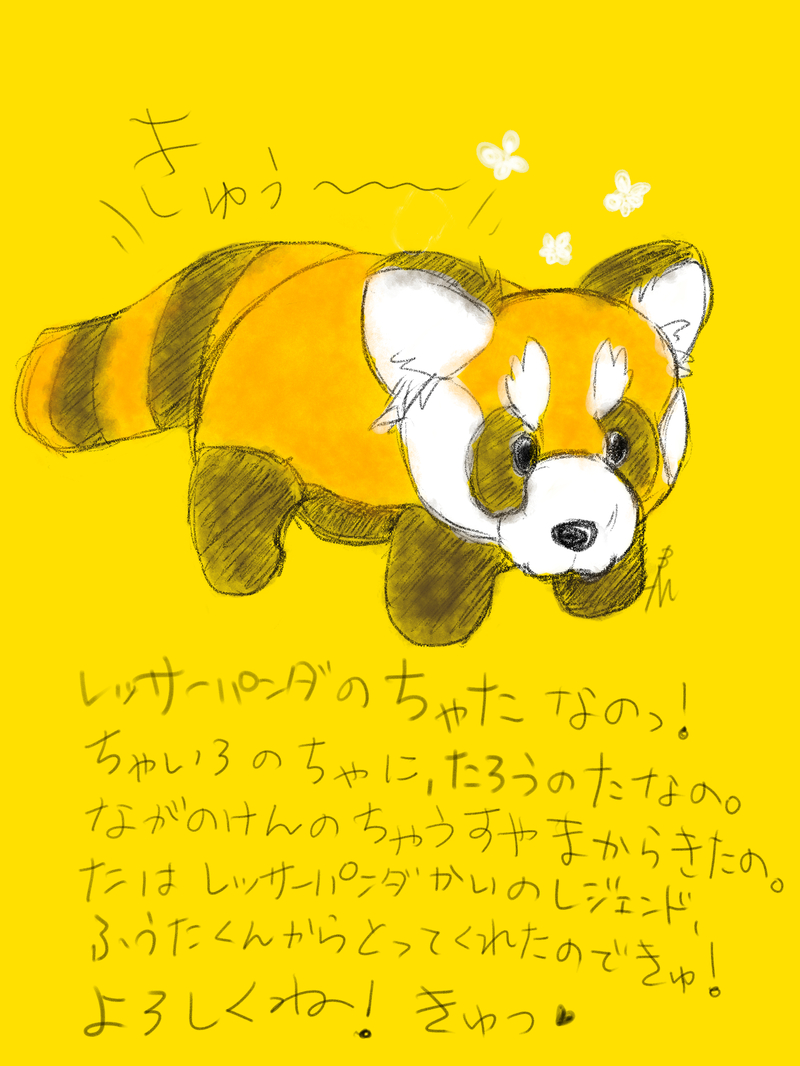 きしゅう〜
レッサーパンダのちゃたなのっ!
ちゃいろのちゃに,たろうのたなの。
ながのけんのちゃうすやまからきたの。
たはレッサーパンダかいのレジェンド,
ふうたくんからとってくれたのできゅ!
よろしくね!きゅっ♥